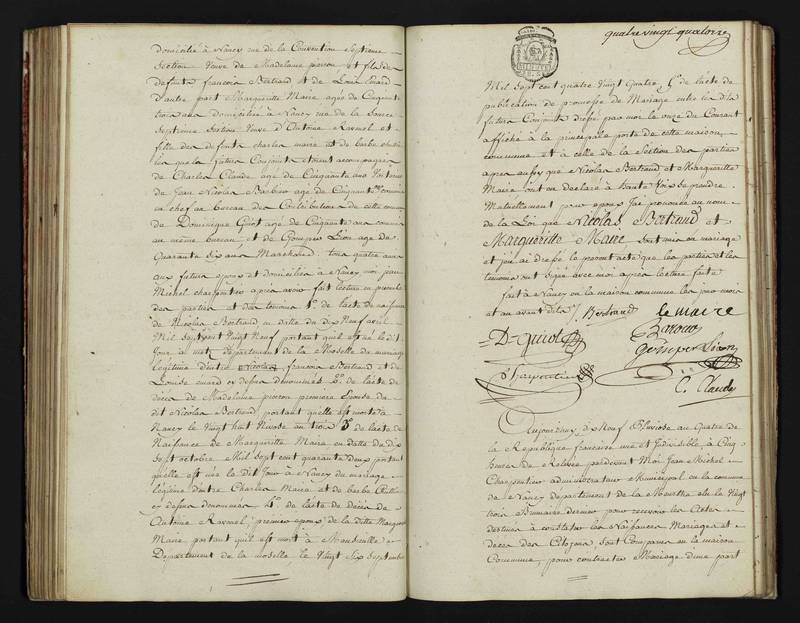 domicilié à Nancy rue de la Convention Septieme
Section Veuf de Madelaine pierson et fils de
defunts francois Bertrand et de Louise
d'autre part Margueritte Maire agée de Cinquante
trois ans domiciliée à Nancy rue de la
Septieme Section Veuve d'Antoine Ravmel et
fille des defunts charles maire et de barbe
les quels futurs Conjoints etoient accompagnés
de Charles Claude agé de Cinquante ans
de Jean Nicolas Barbier agé de Cinquante commis
en chef au bureau des Contributions de cette commune
de Dominique Guiot agé de Cinquante ans commis
au même bureau et de Gomper Lion agé de
Quarante six ans Marchand. tous quatre amis
aux futurs epoux et domiciliés à Nancy moi jean
Michel charpentier apres avoir fait lecture en presence
des parties et des temoins 1º de l'acte de naissance
de Nicolas Bertrand en datte du dix Neuf avril
Mil Sept cent Vingt Neuf portant quil est né le dit
Jour à metz département de la Moselle du mariage
legitime d'entre francois Bertrand et de
Louise ci dessus denommés 2º de l'acte de
deces de Madelaine pierson premiere Epouse du
dit Nicolas Bertrand portant quelle est morte à
Nancy le Vingt huit Nivose an trois 3º de l'acte de
Naissance de Margueritte Maire en datte du Dix
Sept octobre Mil Sept cent quarante deux portant
quelle est née le dit Jour à Nancy du mariage
legitime d'entre Charles Maire et de barbe
cy dessus denommés 4º de l'acte de deces de
Antoine Ravmel, premier epoux de la ditte Margueritte
Maire portant quil est mort à
Département de la moselle le Vingt Six Septembre
quatre vingt quatorze
Mil Sept cent quatre Vingt Quatre, 5º de l'acte de
publication de promesse de Mariage entre les dits
futurs Conjoints dressé par moi le onze du Courant
affiché à la principale porte de cette maison
commune et à celle de la Section des parties
apres aussy que Nicolas Bertrand et Margueritte
Maire ont eu declaré à haute Voix se prendre
Mutuellement pour epoux J'ai prononcé au nom
de la Loi que Nicolas Bertrand et
Margueritte Maire sont unis en mariage
et j'ai dressé le present acte que les parties et les
temoins ont signé avec moi apres lecture faite
fait à Nancy en la maison commune les jour mois
et an avant dits Bertrand le maire
D Guiot
Gomper Lion
Charpentier
C. Claude
Aujourdhuy dix Neuf Pluviose an Quatre de
la Republique francaise une et Indivisible à Cinq
heures de Relevée pardevant Moi Jean Michel
Charpentier administrateur Municipal en la commune
de Nancy departement de la Meurthe élu le Vingt
trois Brumaire dernier pour recevoir les Actes
destinés à constater les Naissances Mariages et
deces des Citoyens Sont Comparus en la maison
Commune, pour contracter Mariage d'une part